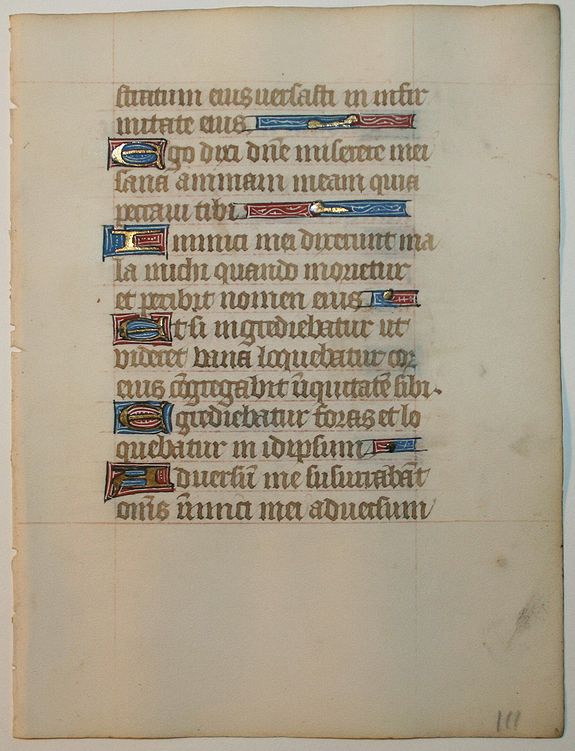 stratum eius versasti in infir
mitate eius
Ego dixi dne miserere mei
sana animam meam quia
peccaui tibi
Inimici mei dixerunt ma
la michi quando morietur
et peribit nomen eius
Et si ingrediebatur ut
videret vana loquebatur cor
eius cōgregabit īiquitatē sibi.
Egrediebatur foras et lo
quebatur in idipsum
Aduersū me susurrabāt
om̄s īimici mei aduersum
111